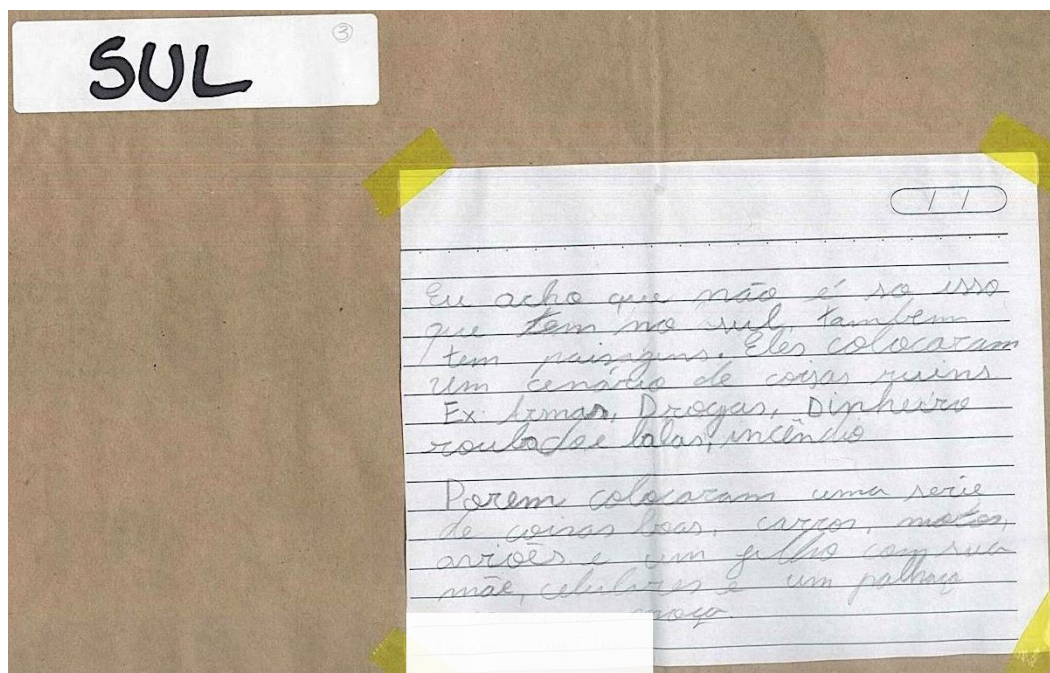 SUL
3
/ /
Eu acho que não é so isso
que tem no sul, tambem
tem paisagens. Eles colocaram
um cenário de coisas ruins
Ex Armas, Drogas, Dinheiro
roubado e balas, incêndio
Porem colocaram uma serie
de coisas boas, carros, motos,
aviões e um filho com sua
mãe, celulares e um palhaço
moço.